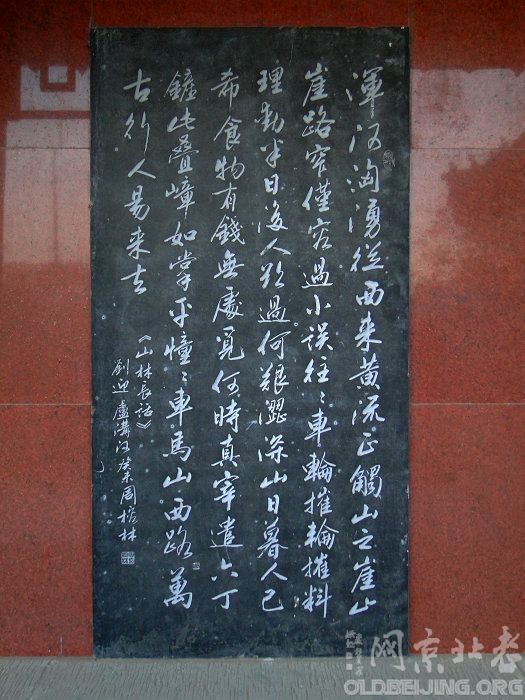 渾河洶湧從西来黄流正觸山之崖山
崖路窄僅容過小误往〻車輪摧輪摧料
理動半日後人欲過何艱澀深山日暮人已
希食物有錢無處覓何時真宰遣六丁
鏟此疊嶂如掌平憧〻車馬山西路萬
古行人易来去
《山林長語》
劉迎盧溝河癸未周林
老北京网
OLDBEIJING.ORG